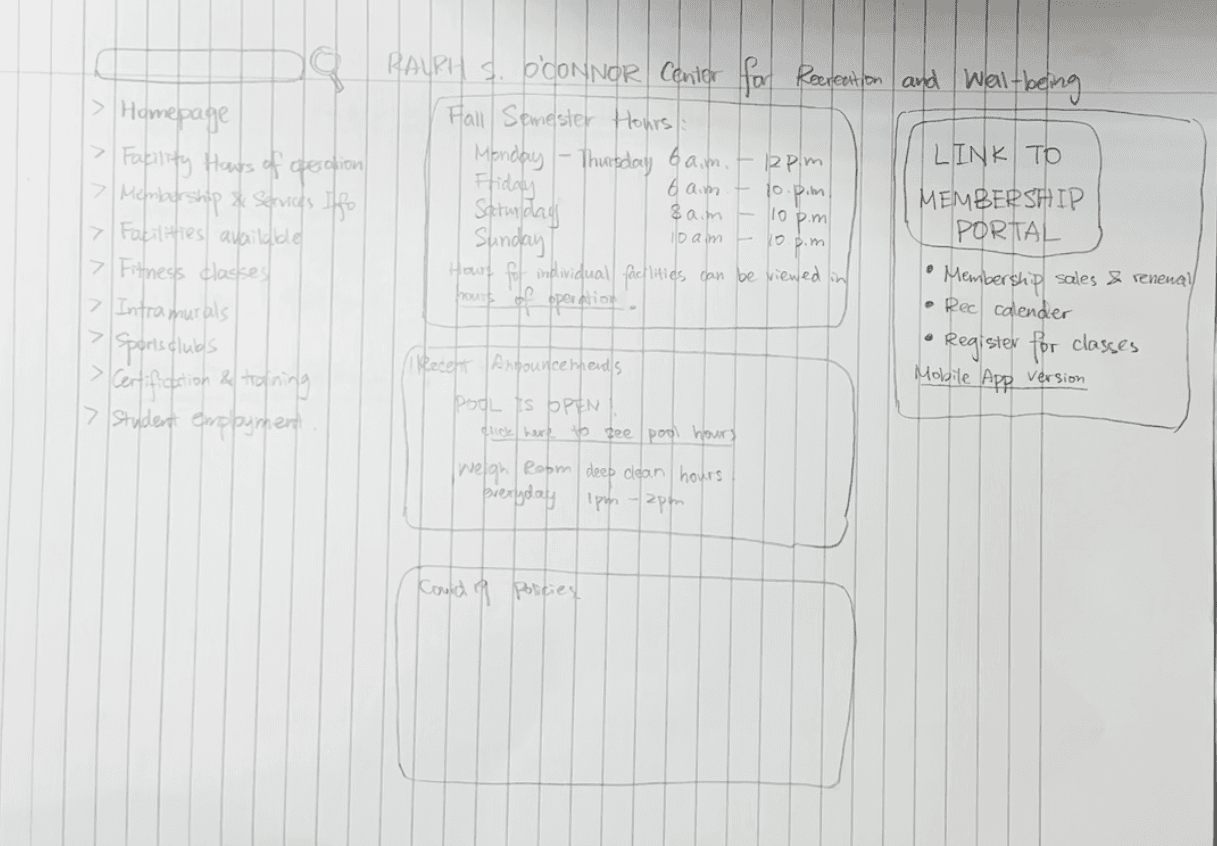 RALPH S. O'CONNOR Center for Recreation and Well-being
> Homepage
> Facility Hours of operation
> Membership & Services Info
> Facilities available
> Fitness classes
> Intramurals
> Sportsclubs
> Certification & training
> Student employment
Fall Semester Hours:
Monday - Thursday 6 a.m. - 12 p.m
Friday 6 a.m - 10 p.m
Saturday 8 a.m - 10 p.m
Sunday 10 a m - 10 p.m
Hours for individual facilities can be viewed in
hours of operation.
Recent Announcements
POOL IS OPEN!
click here to see pool hours
Weigh Room deep clean hours
everyday 1pm - 2pm
Covid 19 Policies
LINK TO
MEMBERSHIP
PORTAL
• Membership sales & renewal
• Rec calender
• Register for classes
Mobile App version